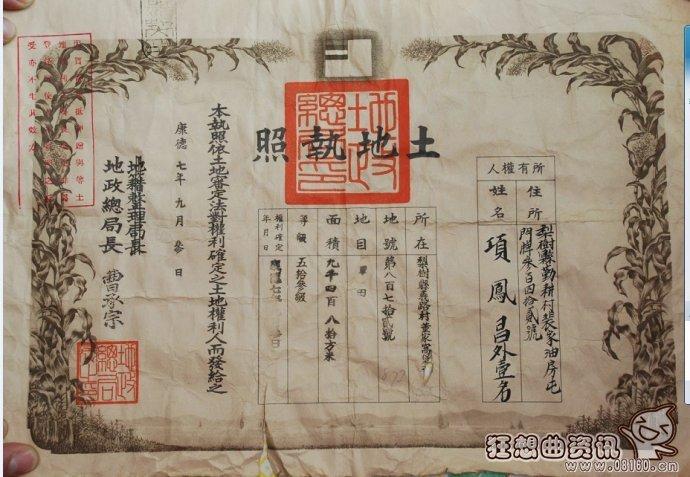 土地執照
地政總局之印
所有權人
住所
姓名
梨樹縣勤耕村裴家油房屯
門牌參百四拾貳號
項鳳昌外壹名
所在
梨樹縣義路村黃家窩堡屯
地號
第八百七拾貳號
872
地目
面積
九千四百八拾方米
等級
五拾參級
權利確定
年月日
本執照依土地審定法對權利確定之土地權利人而發給之
康德七年九月參日
地籍整理局長
地政總局長
曹承宗
受亦不生其效力
狂想曲资讯
www.08160.cn